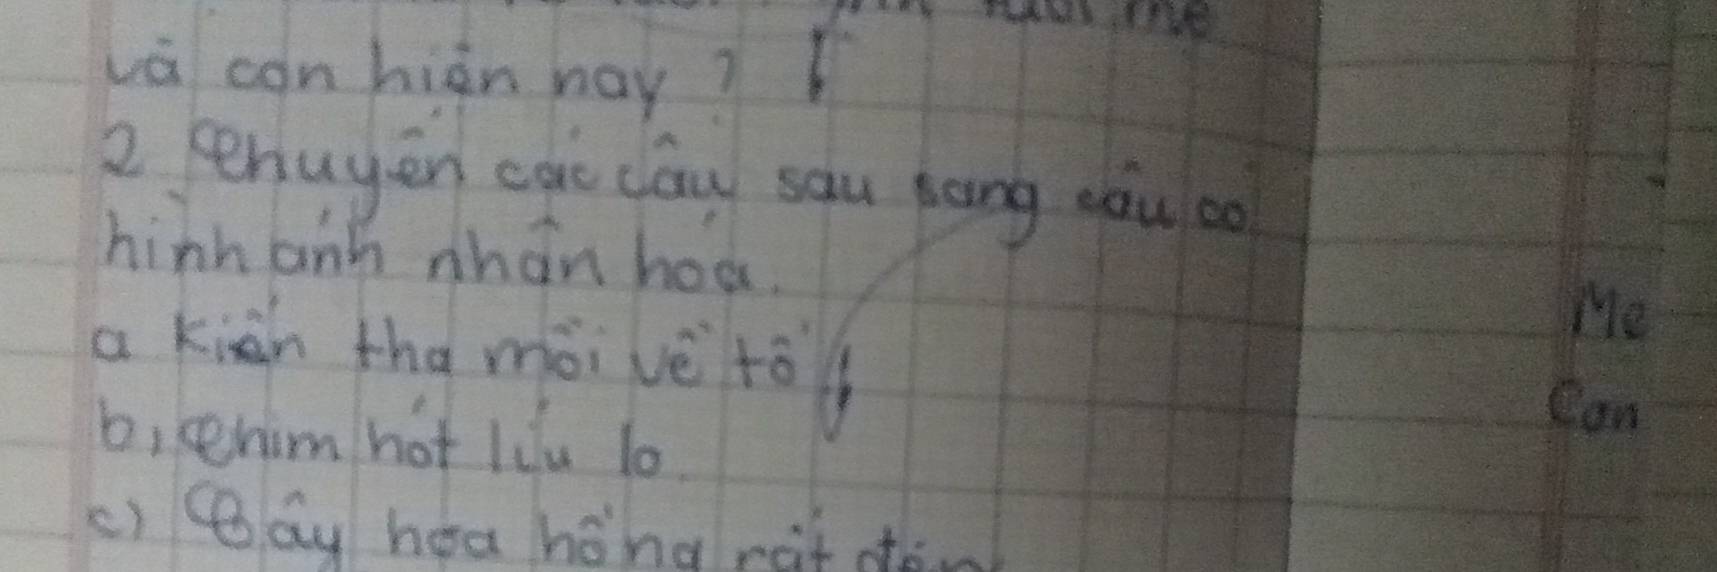 mẹ
và con hiện nay?
2 Chuyển các câu sau sang câu có
hình ảnh nhân hóa.
a Kiến tha mồi về tổ
b, Chim hót líu lo.
c) Cây hoa hồng rất
Mẹ
Con